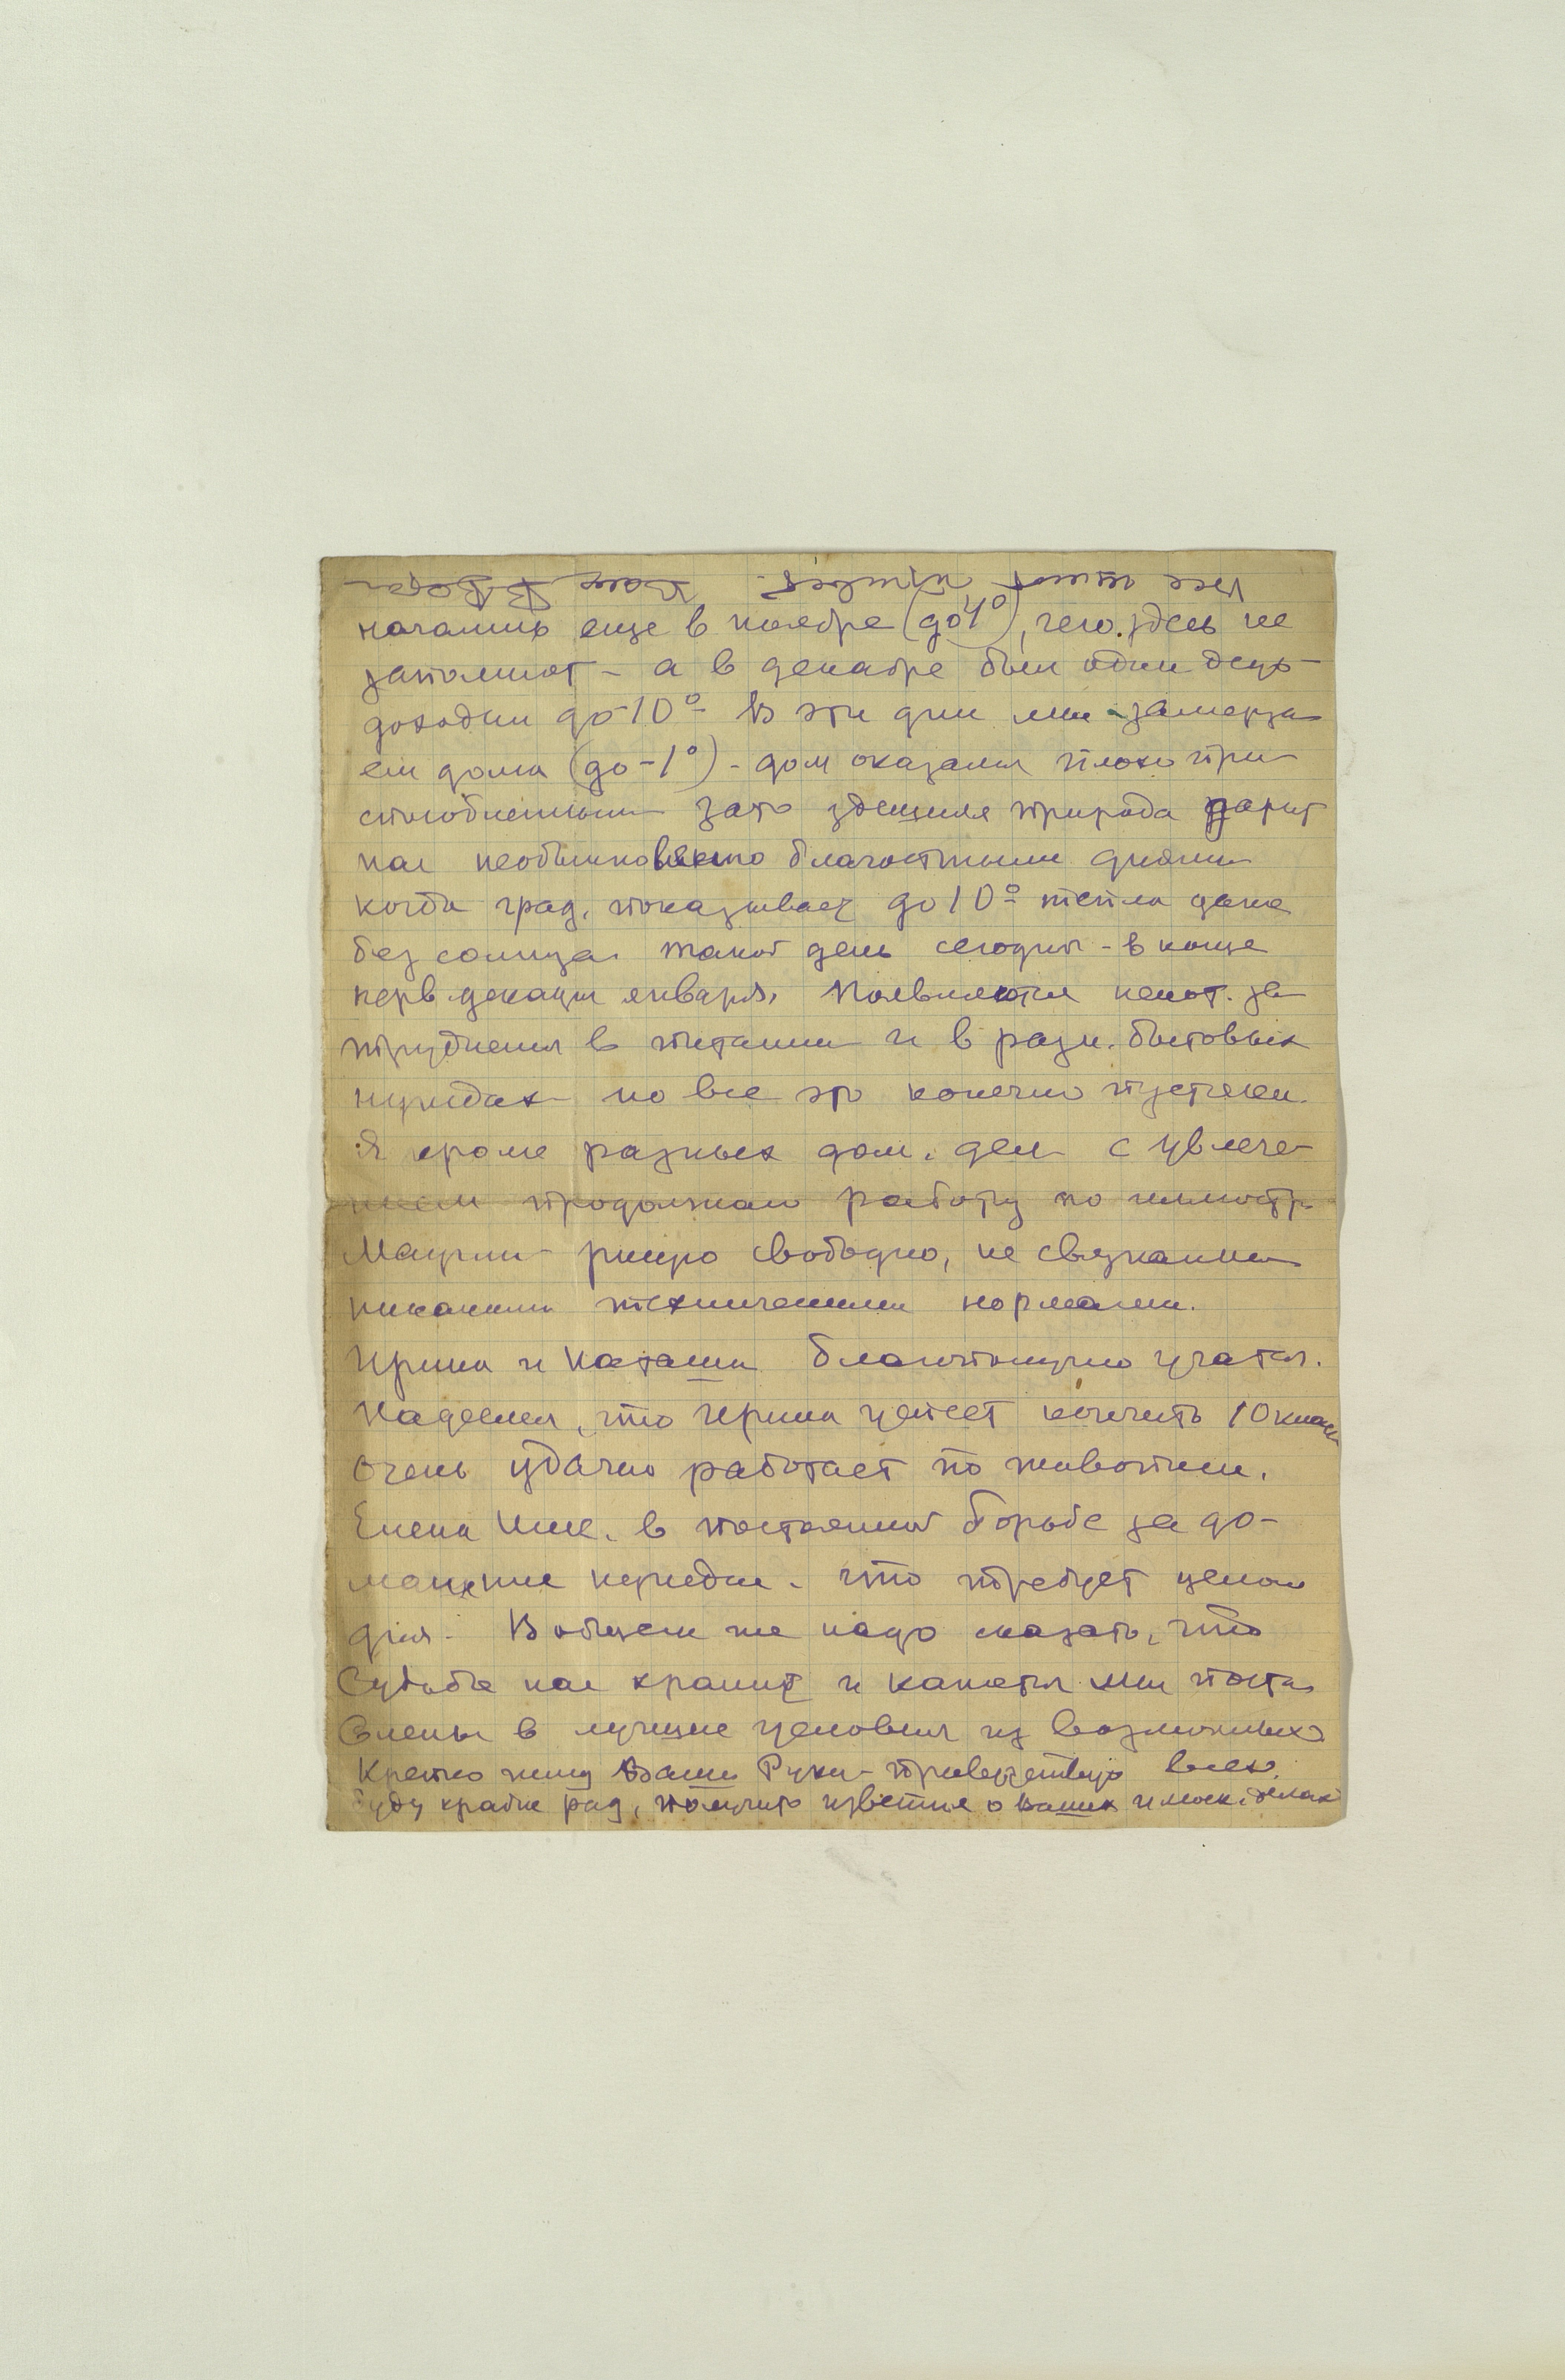 начались еще в ноябре (до 4°), чего здесь не
запомнят – а в декабре был один день
доходил до 10° В эти дни мы замерза
ем дома (до –1°) – дом оказался плохо при
способленным зато здешняя природа дарит
нас необыкновенно благостными днями
когда град. показывает до 10° тепла даже
без солнца. такой день сегодня – в конце
перв. декады января. Появляются некот. за
труднения в питании и в разн. бытовых
нуждах но все это конечно пустяки.
Я кроме разных дом. дел с увлече
нием продолжаю работу по иллюстр.
Маугли – рисую свободно, не связанный
никакими техническими нормами.
Ирина и Наташа благополучно учатся.
Надеемся, что Ирина успеет кончить 10 класс
очень удачно работает по живописи.
Елена Ник. в постоянной борьбе за до–
машние нужды – что требует целого
дня – В общем же надо сказать, что
Судьба нас хранит и кажется мы поста
влены в лучшие условия из возможных
Крепко жму Ваши Руки – приветствую всех
буду крайне рад, получить известия о ваших и моск. делах
Все шлют привет. Ваш В Ватаг